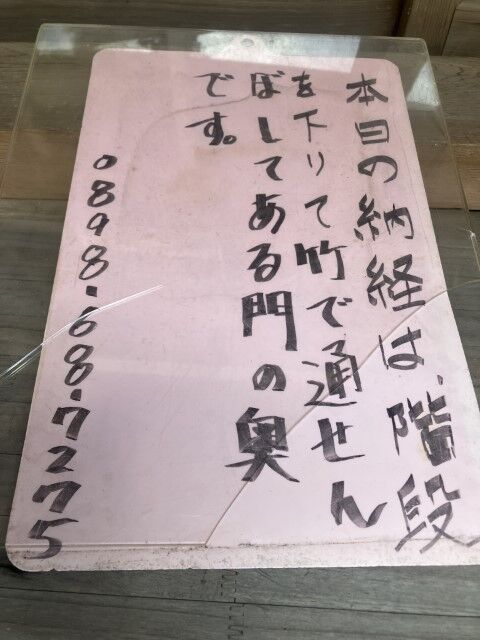 本日の納経は、階段
を下りて竹で通せん
ぼしてある門の奥
です。
0898.68.7275